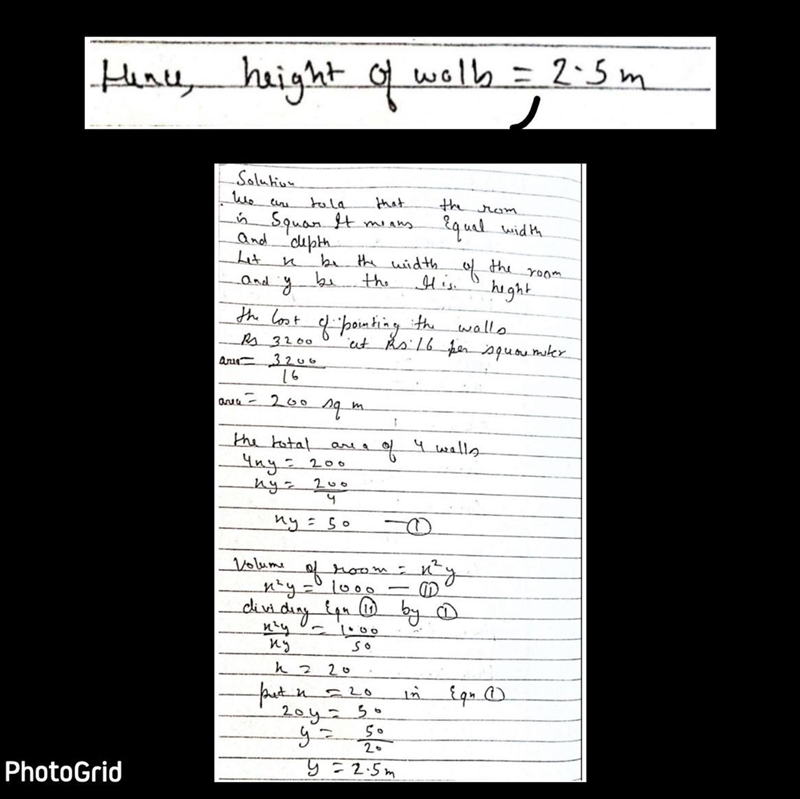 Hence, height of walls = 2.5m
Solution
We are told that the room
is Squar It means Equal width
and depth
Let x be the width of the room
and y be the It is. height
the Cost of painting the walls
Rs 3200 at Rs 16 per square meter
area = 3200
16
area = 200 sq m
the total area of 4 walls
4xy = 200
xy = 200
4
xy = 50 — ①
Volume of room = x²y
x²y = 1000 — ⑪
dividing Eqn ⑪ by ①
x²y = 1000
xy 50
x = 20
put x = 20 in Eqn ①
20y = 50
y = 50
20
y = 2.5m
PhotoGrid